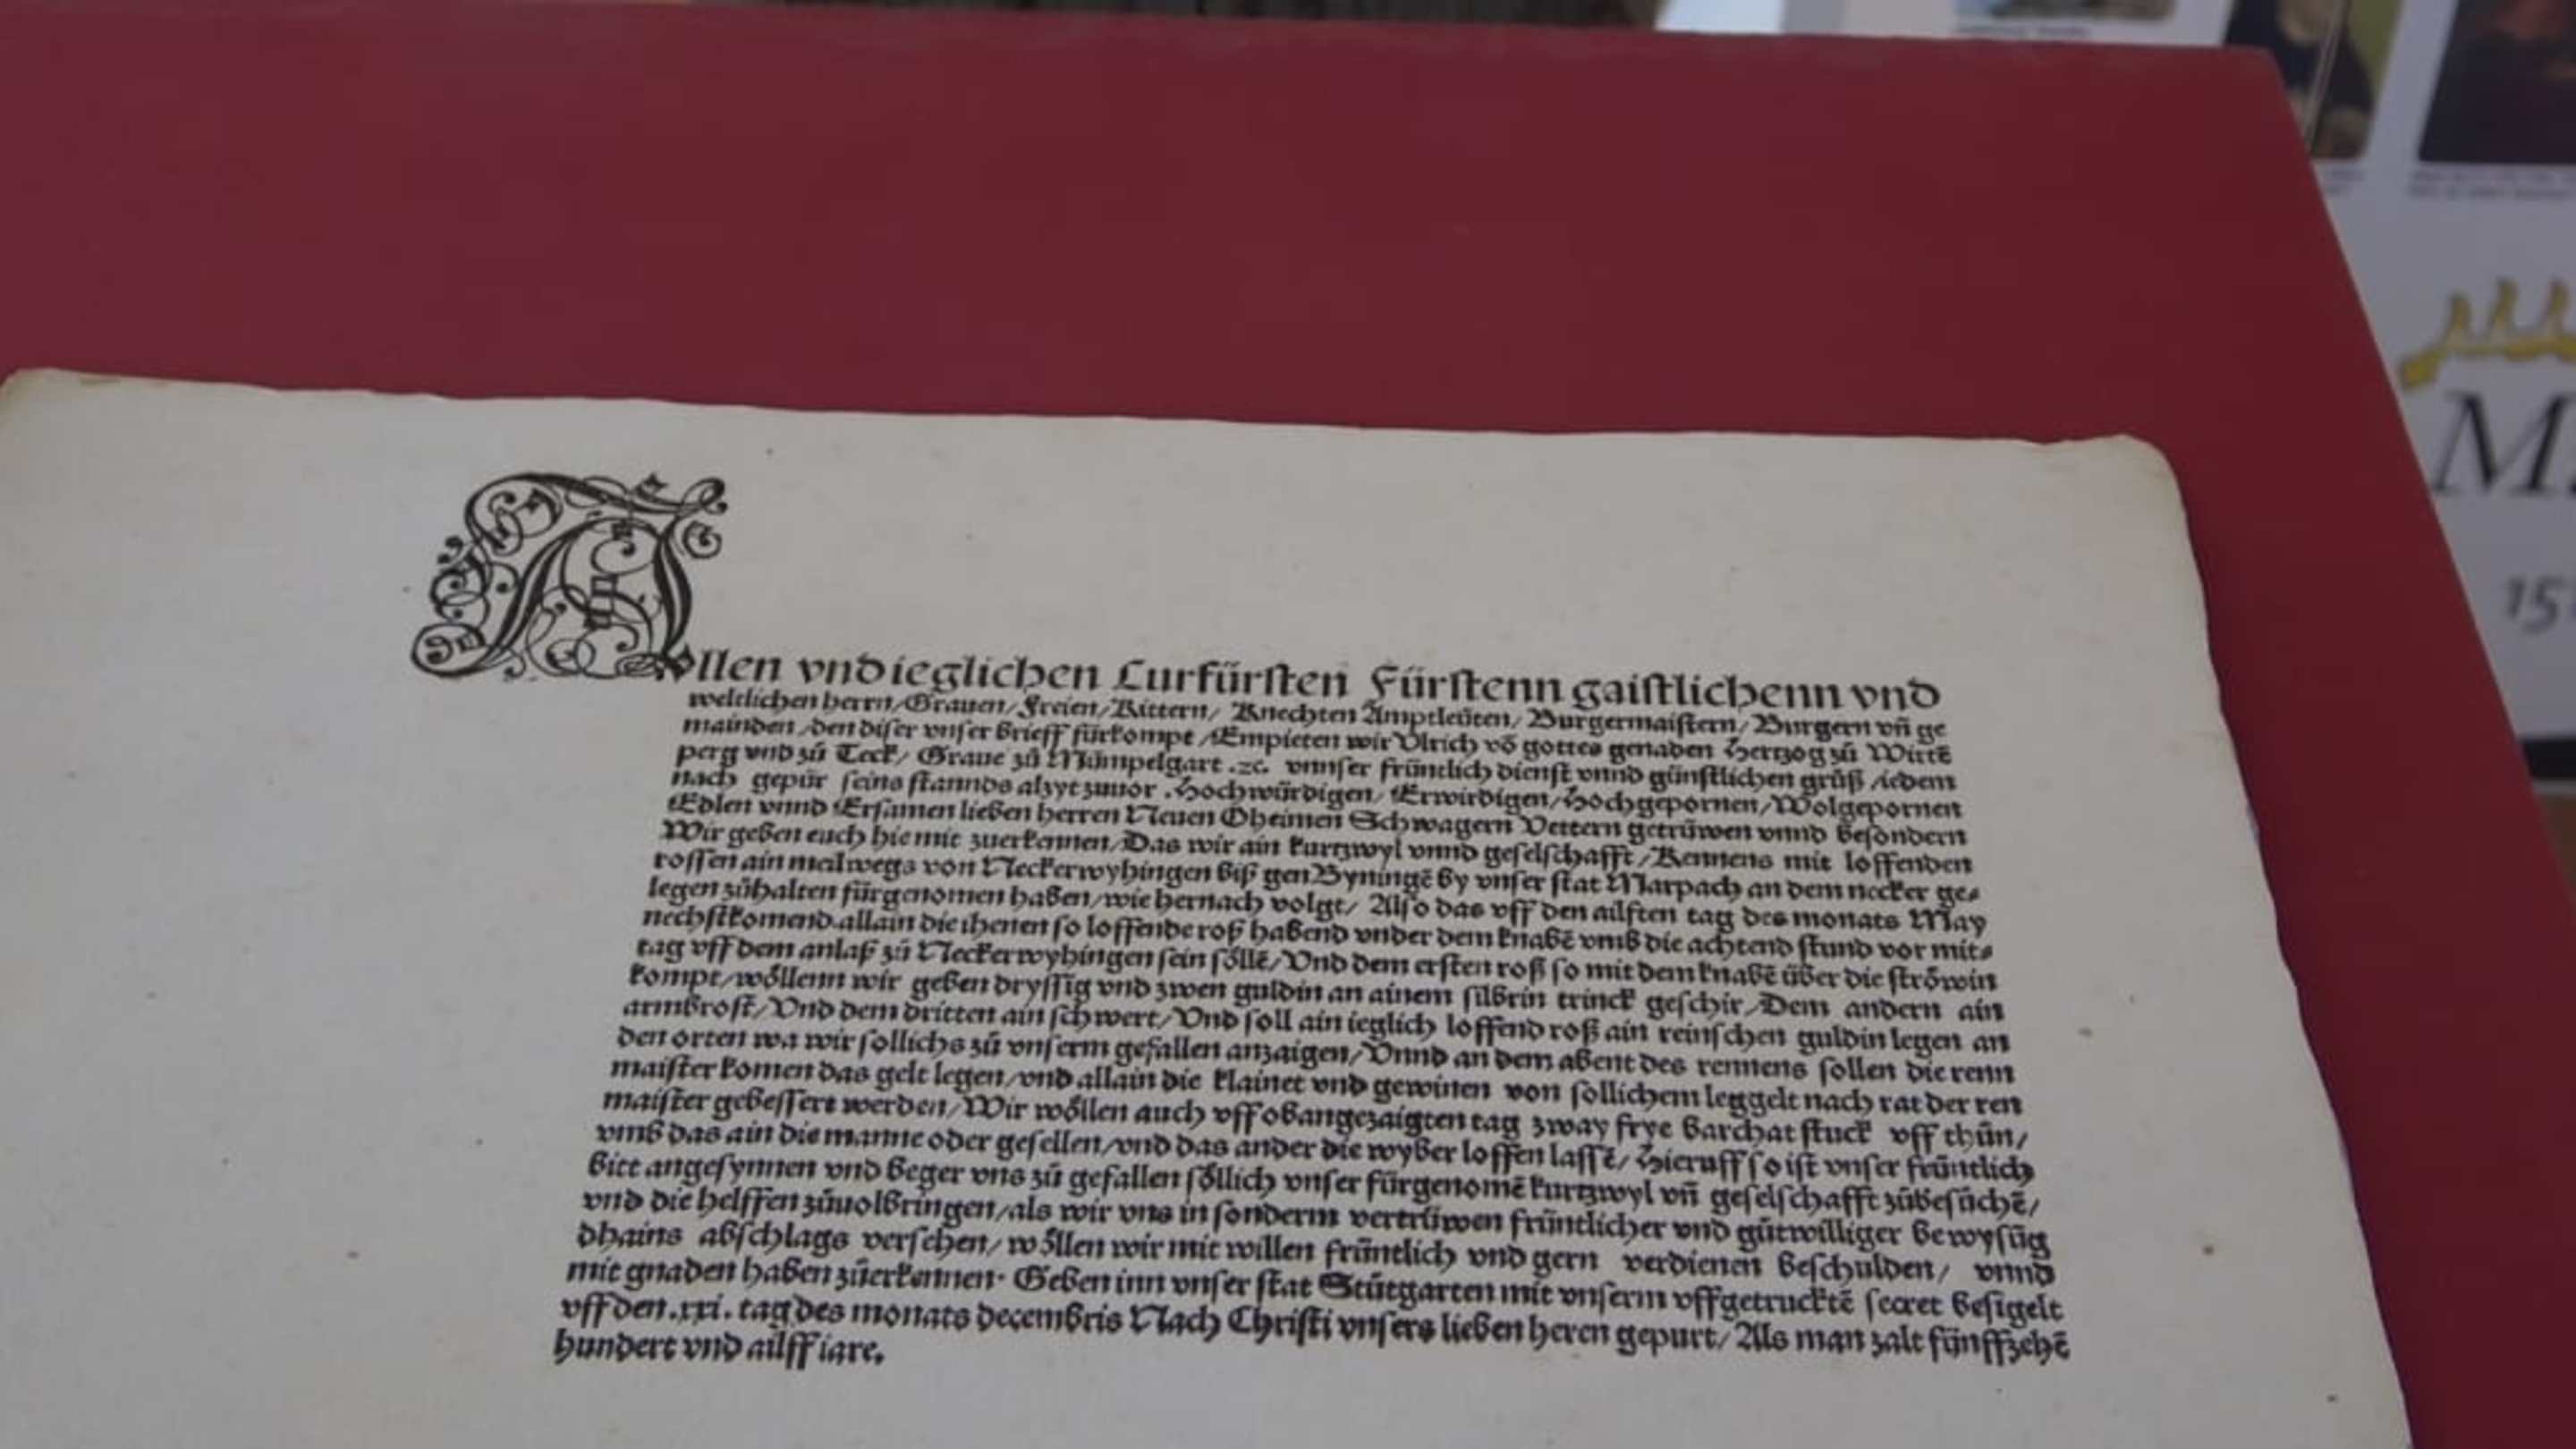 Allen vnd ieglichen Curfürsten Fürstenn gaistlichenn vnd
weltlichen herrn/Grauen/Freien/Rittern/ Knechten Amptleüten/ Burgermaistern/Burgern vn̄ ge
mainden/den diser vnser brieff fürkompt/Empieten wir Vlrich vō gottes genaden Hertzog zů Wirtē
perg vnd zů Teck/ Graue zů Mümpelgart .ꝛc. vnnser früntlich dienst vnnd günstlichen grůß/iedem
nach gepür seins stannds alzyt zuuor. Hochwürdigen/ Erwirdigen/Hochgepornen/Wolgepornen
Edlen vnnd Ersamen lieben herren Neuen Oheimen Schwagern Vettern getrüwen vnnd besondern
Wir geben euch hie mit zuerkennen/Das wir ain kurtzwyl vnnd geselschafft/Rennens mit loffenden
rossen ain meil wegs von Neckerwyhingen biß gen Byningē by vnser stat Marpach an dem necker ge⸗
legen zůhalten fürgenomen haben/wie hernach volgt/ Also das vff den ailften tag des monats May
nechstkomend.allain die ihenen so loffende roß habend vnder dem knabē vmb die achtend stund vor mit⸗
tag vff dem anlaß zů Neckerwyhingen sein söllē/Vnd dem ersten roß so mit dem knabē über die ströwin
kompt/wöllenn wir geben dryssig vnd zwen guldin an ainem silbrin trinck geschir/Dem andern ain
armbrost/Vnd dem dritten ain schwert/Vnd soll ain ieglich loffend roß ain reinschen guldin legen an
den orten wa wir sollichs zů vnserm gefallen anzaigen/Vnnd an dem abent des rennens sollen die renn
maister komen das gelt legen/vnd allain die klainet vnd gewinen von sollichem leggelt nach rat der ren
maister gebessert werden/Wir wöllen auch vff obangezaigten tag zway frye barchat stuck vff thůn/
vmb das ain die manne oder gesellen/vnd das ander die wyber loffen lassē/ Hieruff so ist vnser früntlich
bitt angesynnen vnd beger vns zů gefallen söllich vnser fürgenomē kurtzwyl vn̄ geselschafft zůbesůchē/
vnd die helffen zůuolbringen/als wir vns in sonderm vertrüwen früntlicher vnd gůtwilliger bewysūg
dhains abschlags versehen/wöllen wir mit willen früntlich vnd gern verdienen beschulden/ vnnd
mit gnaden haben zůerkennen. Geben inn vnser stat Stůtgarten mit vnserm vffgetrucktē secret besigelt
vff den .xxi. tag des monats decembris Nach Christi vnsers lieben heren gepurt/Als man zalt fünffzehē
hundert vnd ailff iare.
M
15